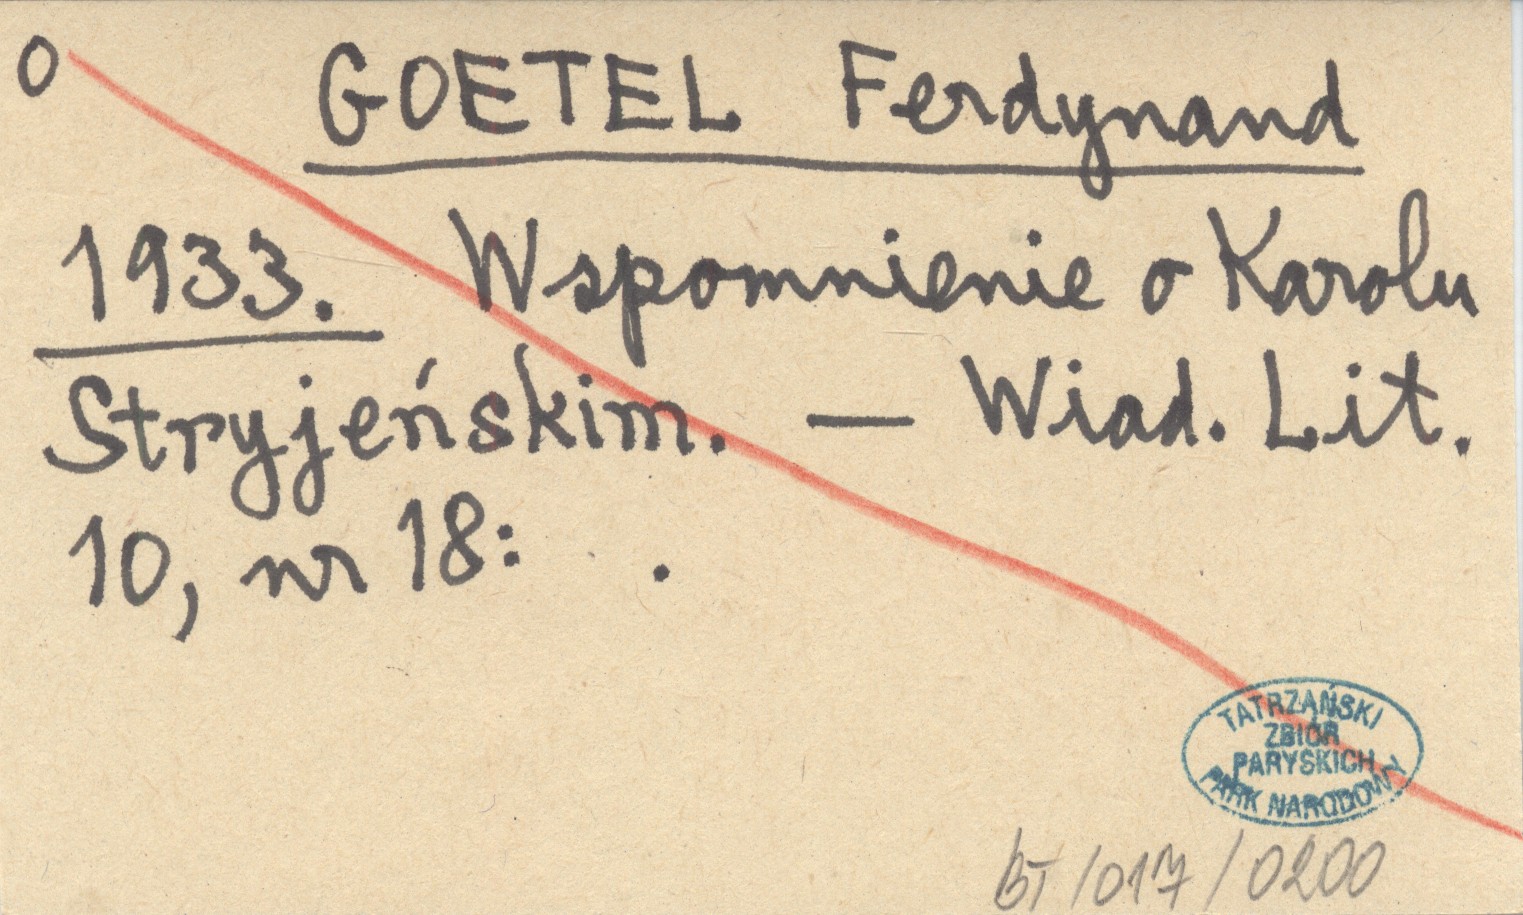 O GOETEL Ferdynand
1933. Wspomnienie o Karolu
Stryjeńskim. — Wiad. Lit.
10, nr 18: .
TATRZAŃSKI
ZBIÓR
PARYSKICH
PARK NARODOWY
BT/017/0200